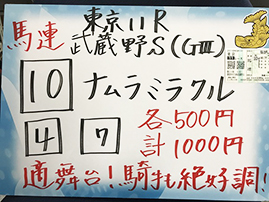 馬連
東京11R
武蔵野S(GⅢ)
10 ナムラミラクル
4 7
各500円
計1000円
適舞台!騎手も絶好調!